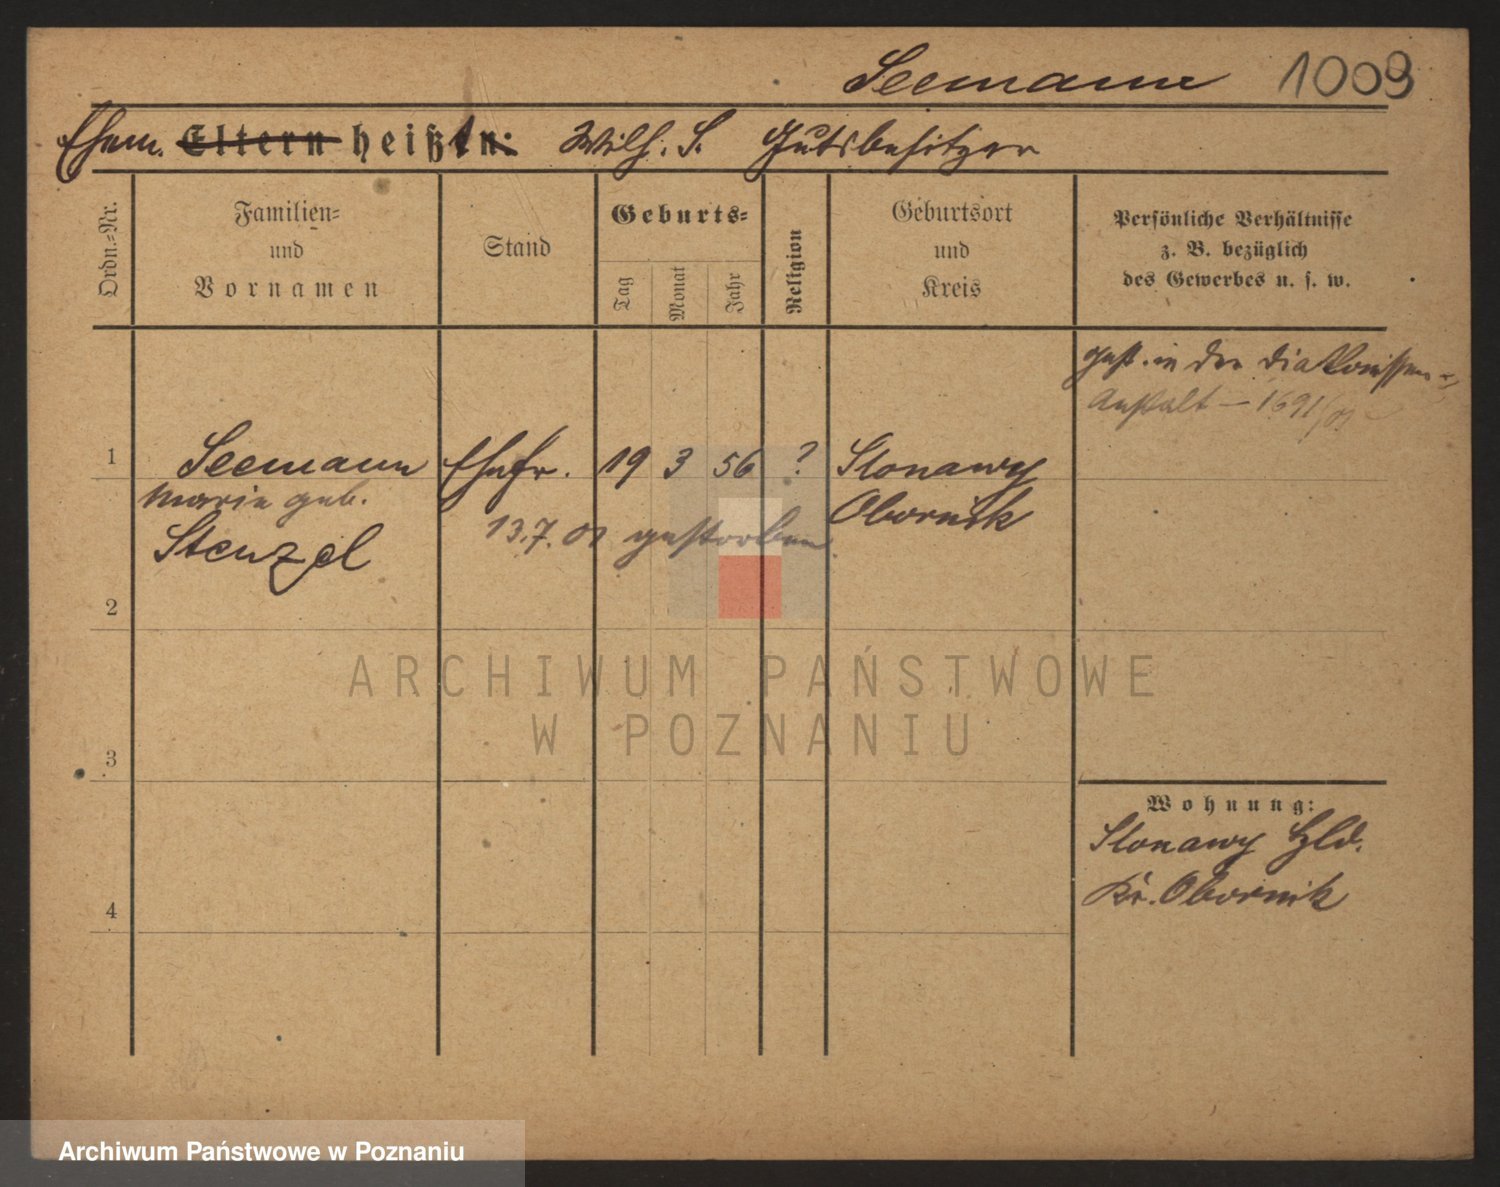 Seemann 1009
Ehem. Eltern heißt: Wilh. S. Gutsbesitzer
Ordn.-Nr.
Familien-
und
Vornamen
Stand
Geburts-
Tag
Monat
Jahr
Religion
Geburtsort
und
Kreis
Persönliche Verhältnisse
z. B. bezüglich
des Gewerbes u. s. w.
gest. in der Diakonissen-
Anstalt – 1691/01
1 Seemann Ehefr. 19 3 56 ? Slonawy
Marie geb. Obornik
13.7.01 gestorben
Stenzel
2
ARCHIWUM PAŃSTWOWE
W POZNANIU
3
Wohnung:
Slonawy Hld.
Kr. Obornik
4
Archiwum Państwowe w Poznaniu